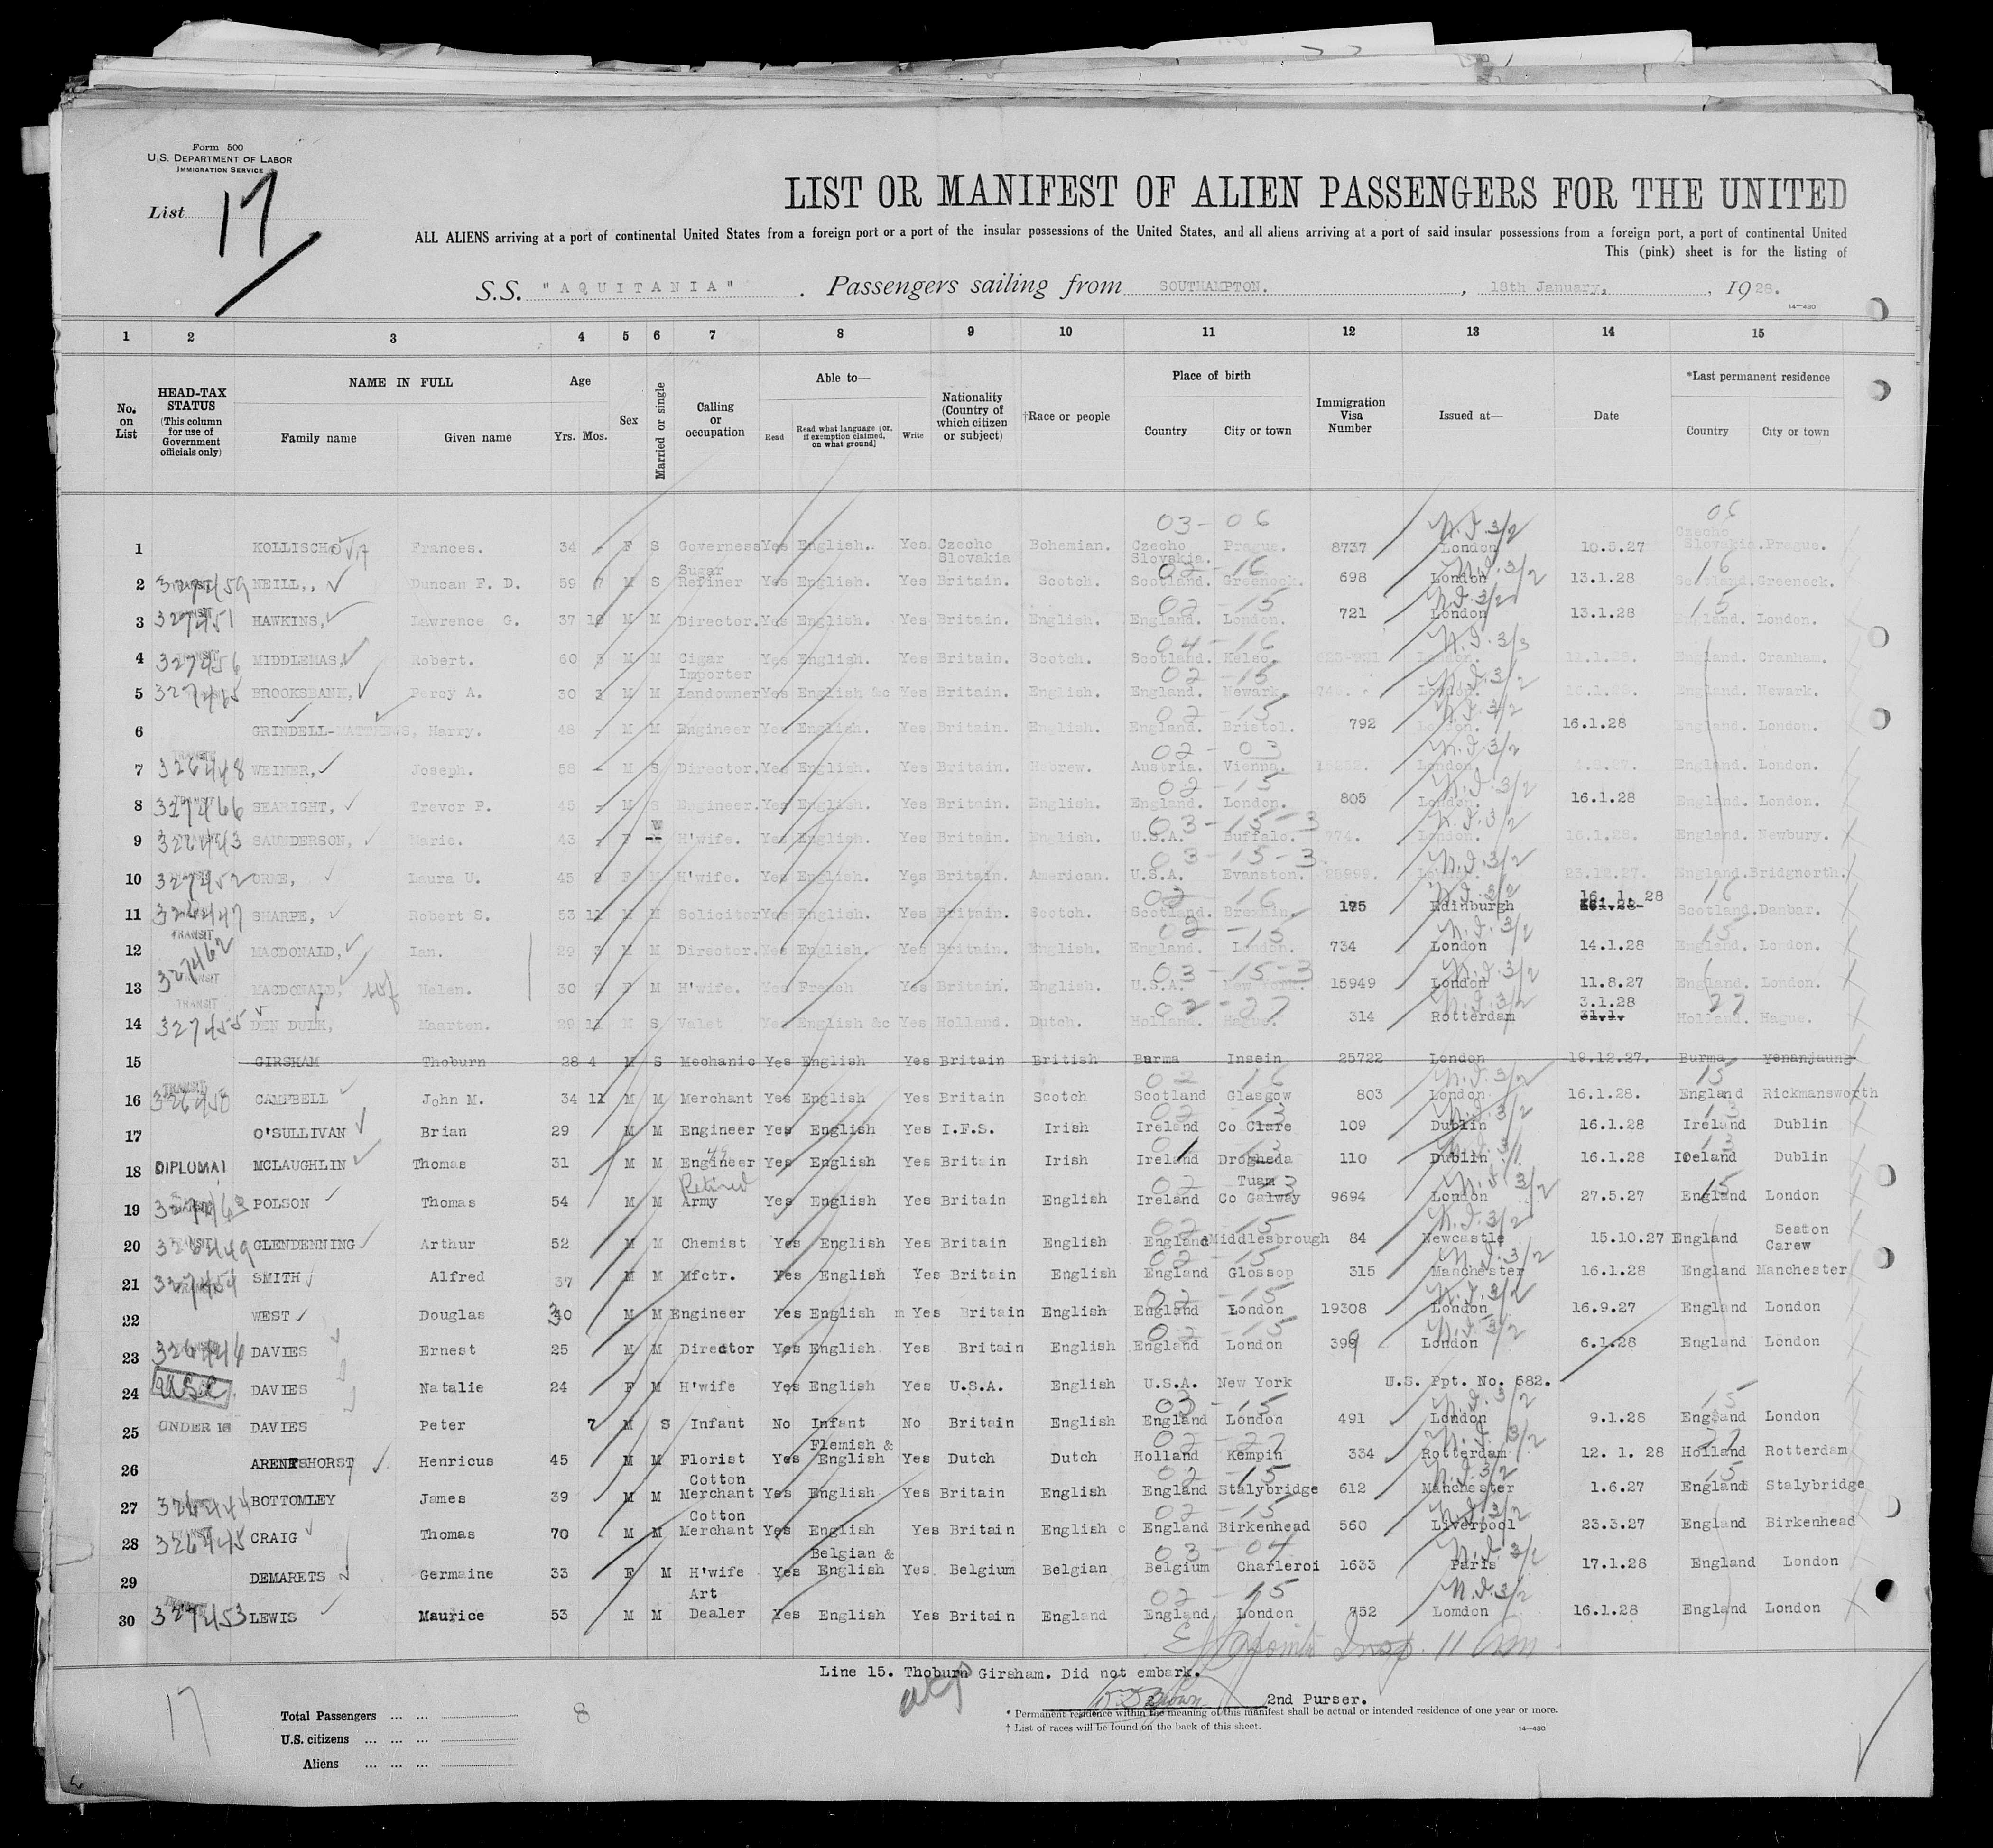 Form 500
U.S. DEPARTMENT OF LABOR
IMMIGRATION SERVICE
List 17
LIST OR MANIFEST OF ALIEN PASSENGERS FOR THE UNITED
ALL ALIENS arriving at a port of continental United States from a foreign port or a port of the insular possessions of the United States, and all aliens arriving at a port of said insular possessions from a foreign port, a port of continental United
This (pink) sheet is for the listing of
S.S. "AQUITANIA". Passengers sailing from SOUTHAMPTON., 18th January,, 1928.
14—430
1 2 3 4 5 6 7 8 9 10 11 12 13 14 15
No. on List
HEAD-TAX STATUS (This column for use of Government officials only)
NAME IN FULL
Family name Given name
Age
Yrs. Mos.
Sex
Married or single
Calling or occupation
Able to—
Read
Read what language (or, if exemption claimed, on what ground)
Write
Nationality (Country of which citizen or subject)
†Race or people
Place of birth
Country City or town
Immigration Visa Number
Issued at—
Date
*Last permanent residence
Country City or town
03-06 N.I. 3/2 06
1 Frances. 34 - F S Governess Yes English. Yes Czecho Slovakia Bohemian. Czecho Slovakia. Prague. 8737 London 10.5.27 Czecho Slovakia. Prague.
02-16 N.I. 3/2 16
2 327459 NEILL,, Duncan F. D. 59 7 M S Sugar Refiner Yes English. Yes Britain. Scotch. Scotland. Greenock. 698 London 13.1.28 Scotland. Greenock.
02-15 N.I. 3/2 15
3 327451 HAWKINS, Lawrence G. 37 10 M M Director. Yes English. Yes Britain. English. England. London. 721 London 13.1.28 England. London.
04-16 N.I. 3/3
4 327456 MIDDLEMAS, Robert. 60 M M Cigar Importer Yes English. Yes Britain. Scotch. Scotland. Kelso. London. England. Cranham.
02-15 N.I. 3/2
5 327465 BROOKSBANK, Percy A. 30 M M Landowner Yes English &c Yes Britain. English. England. Newark. London. England. Newark.
02-15 N.I. 3/2
6 GRINDELL-MATTHEWS, Harry. 48 - M M Engineer Yes English. Yes Britain. English. England. Bristol. 792 London. 16.1.28 England. London.
02-03 N.I. 3/2
7 TRANSIT 326448 WEINER, Joseph. 58 - M S Director. Yes English. Yes Britain. Hebrew. Austria. Vienna. London. England. London.
02-15 N.I. 3/2
8 327466 SEARIGHT, Trevor P. 45 - M S Engineer. Yes English. Yes Britain. English. England. London. 805 London. 16.1.28 England. London.
03-15-3 N.I. 3/2
9 326443 SAUNDERSON, Marie. 43 - F W -- H'wife. Yes English. Yes Britain. English. U.S.A. Buffalo. 774. London. 16.1.28. England. Newbury.
03-15-3 N.I. 3/2
10 327452 ORME, Laura U. 45 F M H'wife. Yes English. Yes Britain. American. U.S.A. Evanston. 23.12.27. England. Bridgnorth.
02 16 N.I. 3/2 16
11 326447 SHARPE, Robert S. 53 11 M M Solicitor Yes English. Yes Britain. Scotch. Scotland. Brechin. 175 Edinburgh 16.1.28 Scotland. Dunbar.
02-15 N.I. 3/2 15
12 TRANSIT 327462 MACDONALD, Ian. 29 3 M M Director. Yes English. Yes Britain. English. England. London. 734 London 14.1.28 England. London.
03-15-3 N.I. 3/2
13 MACDONALD, wf Helen. 30 2 F M H'wife. Yes French Yes Britain. English. U.S.A. New York. 15949 London 11.8.27 England. London.
02-27 N.I. 3/2 27
14 TRANSIT 327455 DEN DULK, Maarten. 29 11 M S Valet Yes English &c Yes Holland. Dutch. Holland. Hague. 314 Rotterdam 3.1.28 31.1. Holland. Hague.
15 GIRSHAM Thoburn 28 4 M S Mechanic Yes English Yes Britain British Burma Insein 25722 London 19.12.27. Burma Yenanjaung
02 16 N.I. 3/2 15
16 TRANSIT 326458 CAMPBELL John M. 34 11 M M Merchant Yes English Yes Britain Scotch Scotland Glasgow 803 London 16.1.28. England Rickmansworth
02 13 N.I. 3/2 13
17 O'SULLIVAN Brian 29 M M Engineer Yes English Yes I.F.S. Irish Ireland Co Clare 109 Dublin 16.1.28 Ireland Dublin
01 13 13
18 DIPLOMAT MCLAUGHLIN Thomas 31 M M Engineer Yes English Yes Britain Irish Ireland Drogheda 110 Dublin 16.1.28 Ireland Dublin
02 13 N.I. 3/2 15
19 POLSON Thomas 54 M M Retired Army Yes English Yes Britain English Ireland Tuam Co Galway 9694 London 27.5.27 England London
02-15 N.I. 3/2
20 326449 GLENDENNING Arthur 52 M M Chemist Yes English Yes Britain English England Middlesbrough 84 Newcastle 15.10.27 England Seaton Carew
02-15 N.I. 3/2
21 327454 SMITH Alfred 37 M M Mfctr. Yes English Yes Britain English England Glossop 315 Manchester 16.1.28 England Manchester
02-15 N.I. 3/2
22 WEST Douglas 40 M M Engineer Yes English m Yes Britain English England London 19308 London 16.9.27 England London
02 15 N.I. 3/2
23 326446 DAVIES Ernest 25 M M Director Yes English Yes Britain English England London 399 London 6.1.28 England London
24 U.S.C. DAVIES Natalie 24 F M H'wife Yes English Yes U.S.A. English U.S.A. New York U.S. Ppt. No. 682.
03-15 N.I. 3/2 15
25 UNDER 16 DAVIES Peter 7 M S Infant No Infant No Britain English England London 491 London 9.1.28 England London
02-27 N.I. 3/2 27
26 ARENTSHORST Henricus 45 M M Florist Yes Flemish & English Yes Dutch Dutch Holland Kempin 334 Rotterdam 12. 1. 28 Holland Rotterdam
02-15 N.I. 3/2 15
27 326444 BOTTOMLEY James 39 M M Cotton Merchant Yes English Yes Britain English England Stalybridge 612 Manchester 1.6.27 England Stalybridge
02-15 N.I. 3/2
28 326445 CRAIG Thomas 70 M M Cotton Merchant Yes English Yes Britain English c England Birkenhead 560 Liverpool 23.3.27 England Birkenhead
03-04 N.I. 3/2
29 DEMARETS Germaine 33 F M H'wife Yes Belgian & English Yes Belgium Belgian Belgium Charleroi 1633 Paris 17.1.28 England London
02-15 N.I. 3/2
30 327453 LEWIS Maurice 53 M M Art Dealer Yes English Yes Britain England England London 752 Lomdon 16.1.28 England London
Insp. 11 am
Line 15. Thoburn Girsham. Did not embark.
2nd Purser.
17
Total Passengers ... ... 8
U.S. citizens ... ... ...
Aliens ... ... ...
* Permanent residence within the meaning of this manifest shall be actual or intended residence of one year or more.
† List of races will be found on the back of this sheet.
14—430